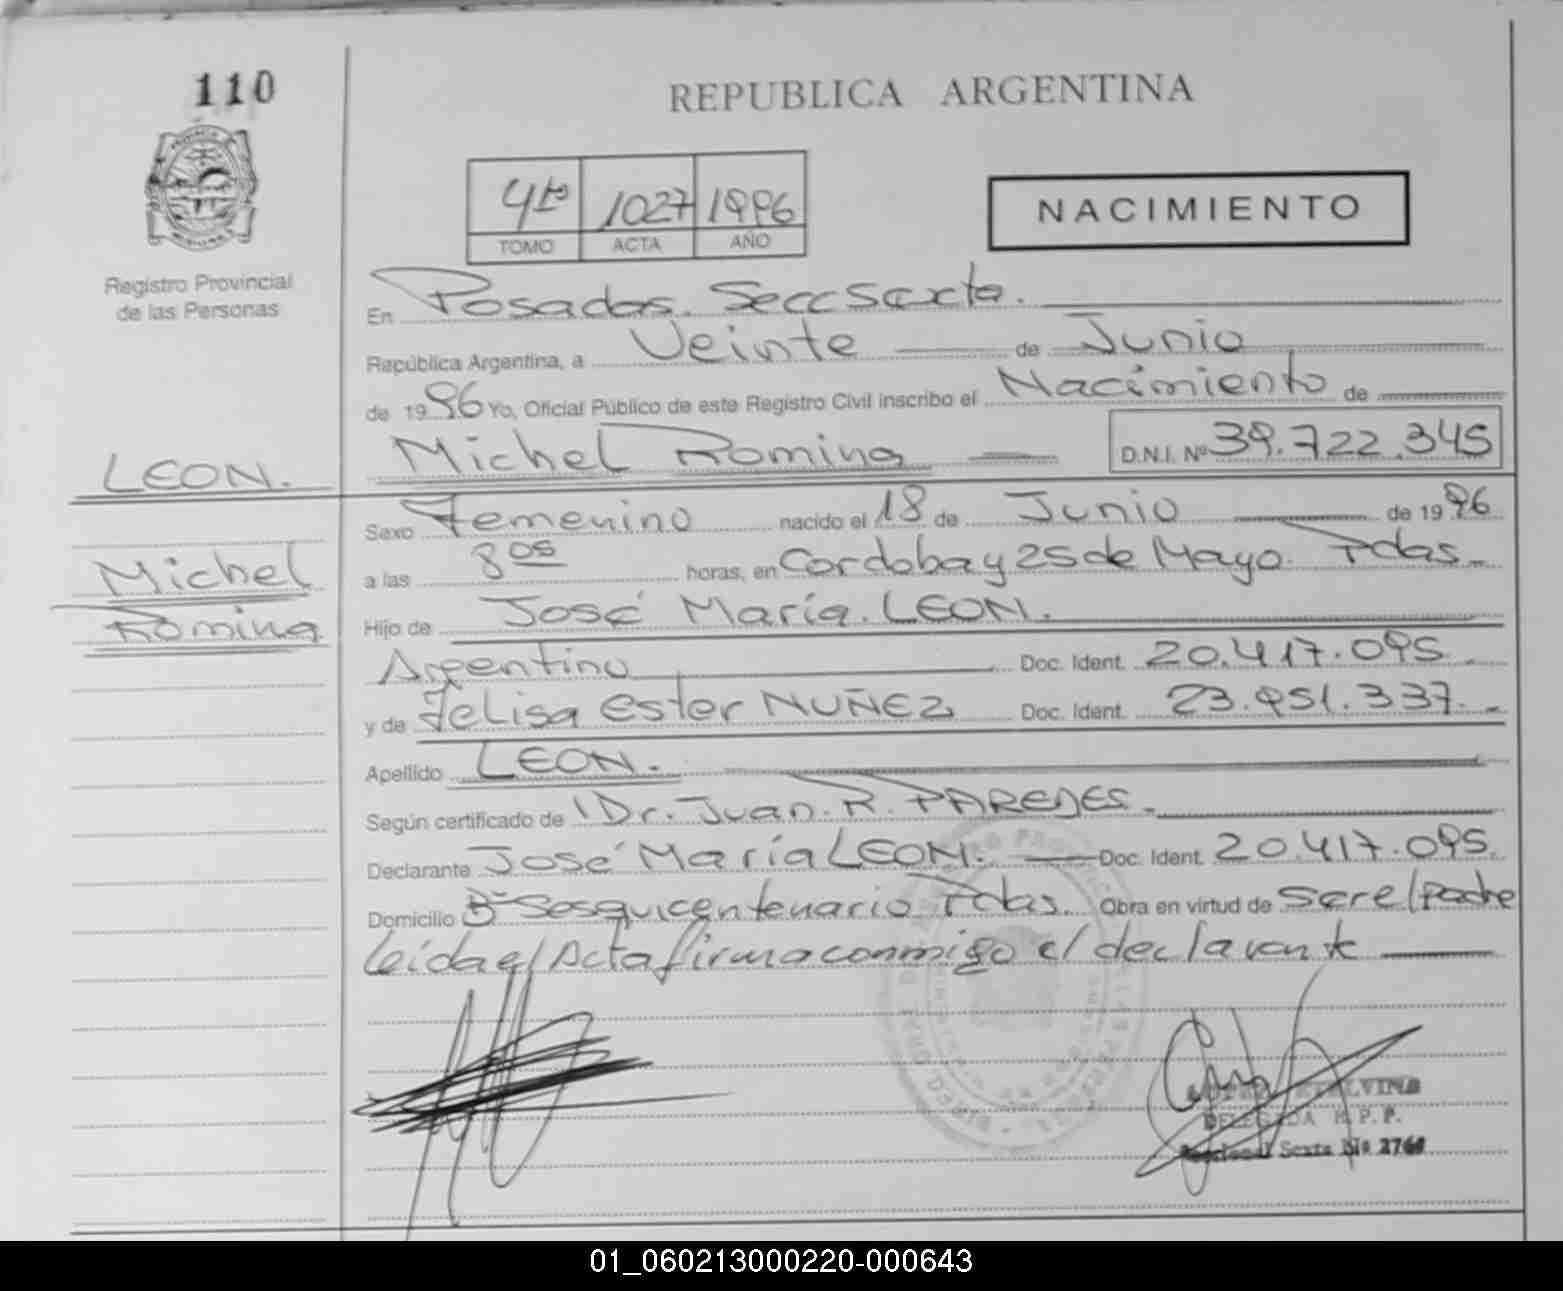 110
REPUBLICA ARGENTINA
4to 1027 1996
TOMO ACTA AÑO
NACIMIENTO
Registro Provincial
de las Personas
En Posadas. Secc Sexta.
República Argentina, a Veinte de Junio
de 1996 Yo, Oficial Público de este Registro Civil inscribo el Nacimiento de
LEON. Michel Romina D.N.I. Nº 39.722.345
Sexo Femenino nacido el 18 de Junio de 1996
Michel
a las 8 os horas, en Cordoba y 25 de Mayo. Pdas.
Romina
Hijo de José María. LEON.
Argentino Doc. Ident. 20.417.095
y de Felisa Ester NUÑEZ Doc. Ident. 23.951.337.
Apellido LEON.
Según certificado de Dr. Juan. R. PAREDES.
Declarante José María LEON. Doc. Ident. 20.417.095.
Domicilio Bº Sesquicentenario Pdas. Obra en virtud de ser el Padre
leída el Acta firma conmigo el declarante
DELEGADA R.P.P.
Seccional Sexta
01_060213000220-000643